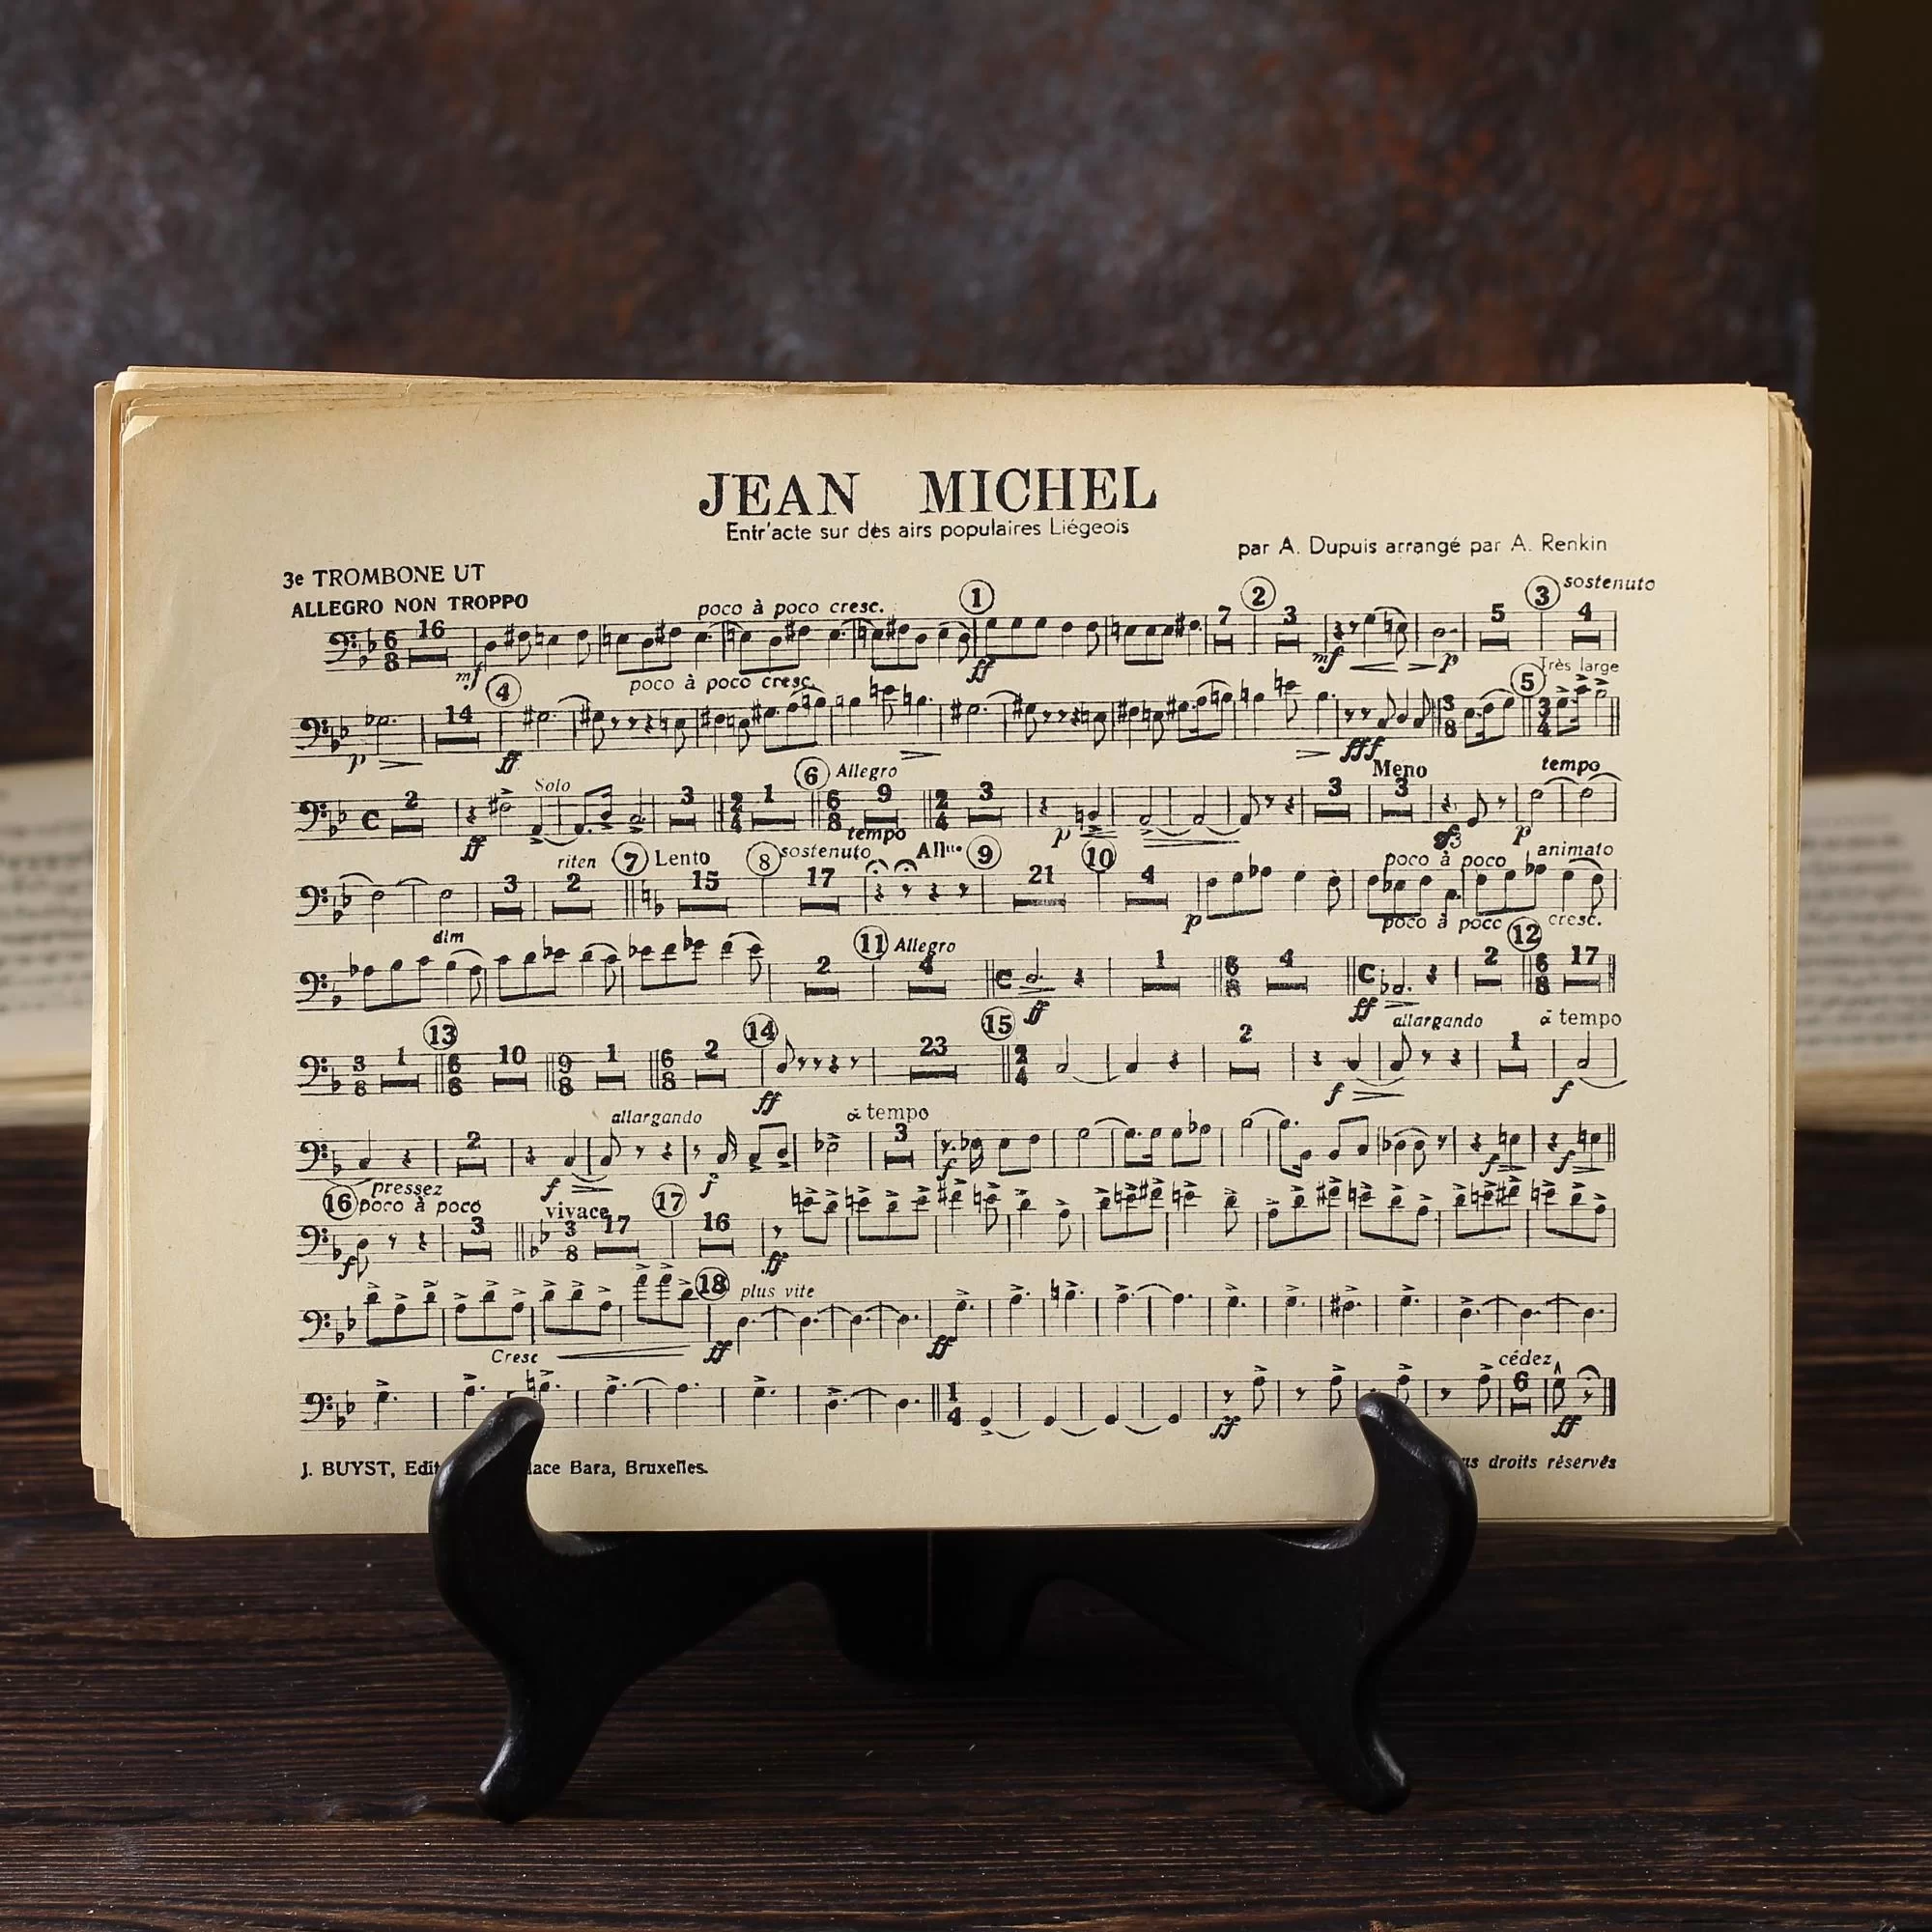 JEAN MICHEL
Entr'acte sur des airs populaires Liégeois
par A. Dupuis arrangé par A. Renkin
3e TROMBONE UT
ALLEGRO NON TROPPO
poco à poco cresc. 1 2 3 sostenuto
6 8 16 7 3 5 4
mf ff mf p
4 poco à poco cresc. 5 Très large
14 3 8 3 4
p ff fff
Solo 6 Allegro Meno tempo
C 2 3 2 4 1 6 8 9 2 4 3 3 3
ff p p
riten 7 Lento 8 sostenuto tempo Allto 9 10 poco à poco animato
3 2 15 17 21 4
dim p poco à poco cresc.
11 Allegro 12
2 4 C 1 6 8 4 C 2 6 8 17
ff ff
13 14 15 allargando à tempo
3 8 1 6 8 10 9 8 1 6 8 2 23 2 4 2 1
ff f f
allargando à tempo
2 3
f f f f f
16 pressez poco à poco vivace 17
3 3 8 17 16
f ff
18 plus vite
Cresc ff ff
cédez
1 4 6
ff ff
J. BUYST, Bara, Bruxelles.
droits réservés